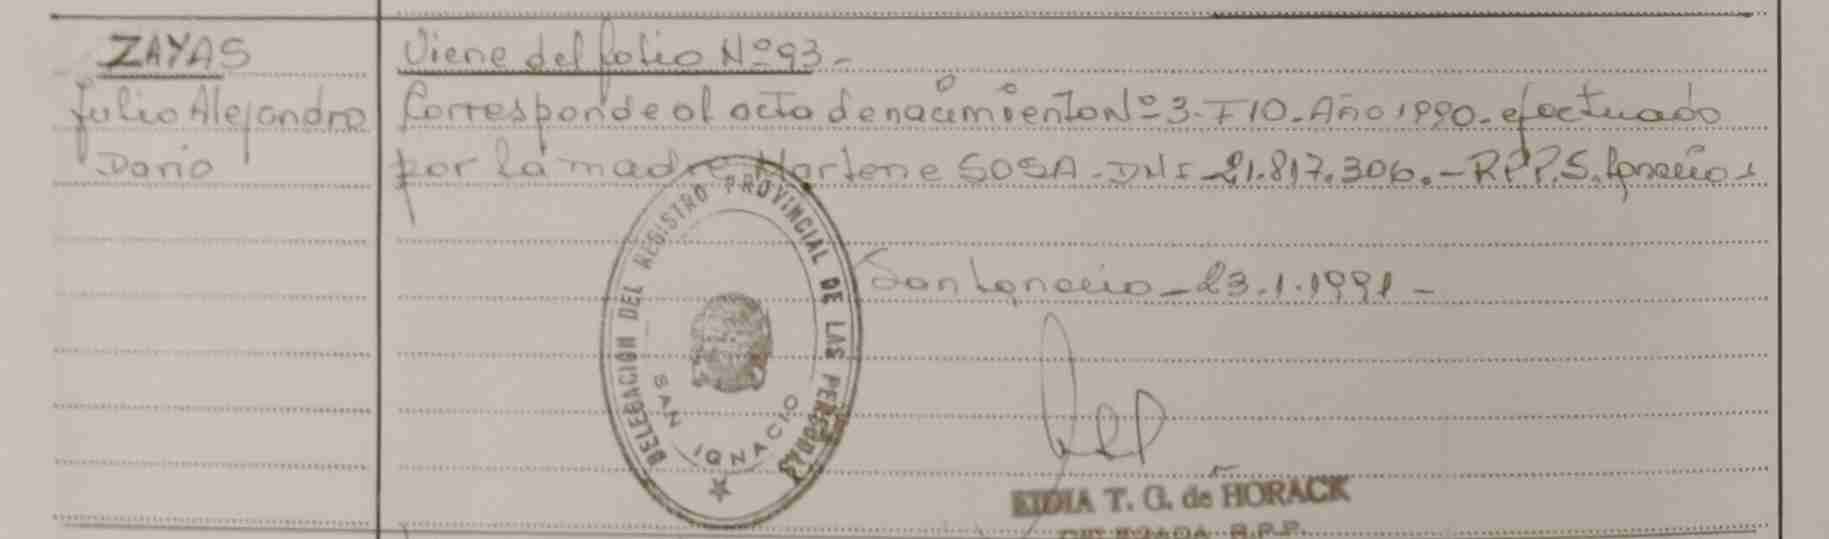 ZAYAS
Julio Alejandro
Dario
Viene del folio Nº 93-
Corresponde al acta de nacimiento Nº 3-T 10-Año 1990-efectuado
por la madre Marlene SOSA-DNI-21.817.306.-RPP.S. Ignacio
San Ignacio-23.1.1991-
DELEGACION DEL REGISTRO PROVINCIAL DE LAS PERSONAS
SAN IGNACIO
T. G. de HORACK
R.P.P.